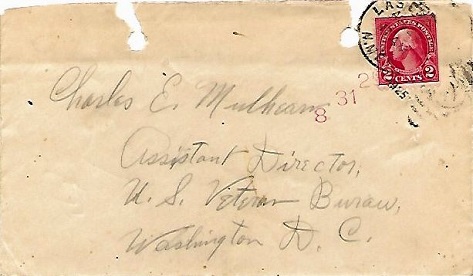 UNITED STATES POSTAGE
2 CENTS 2
Charles E. Mulhearn
8 31
Assistant Director,
U. S. Veteran Bureau,
Washington D. C.